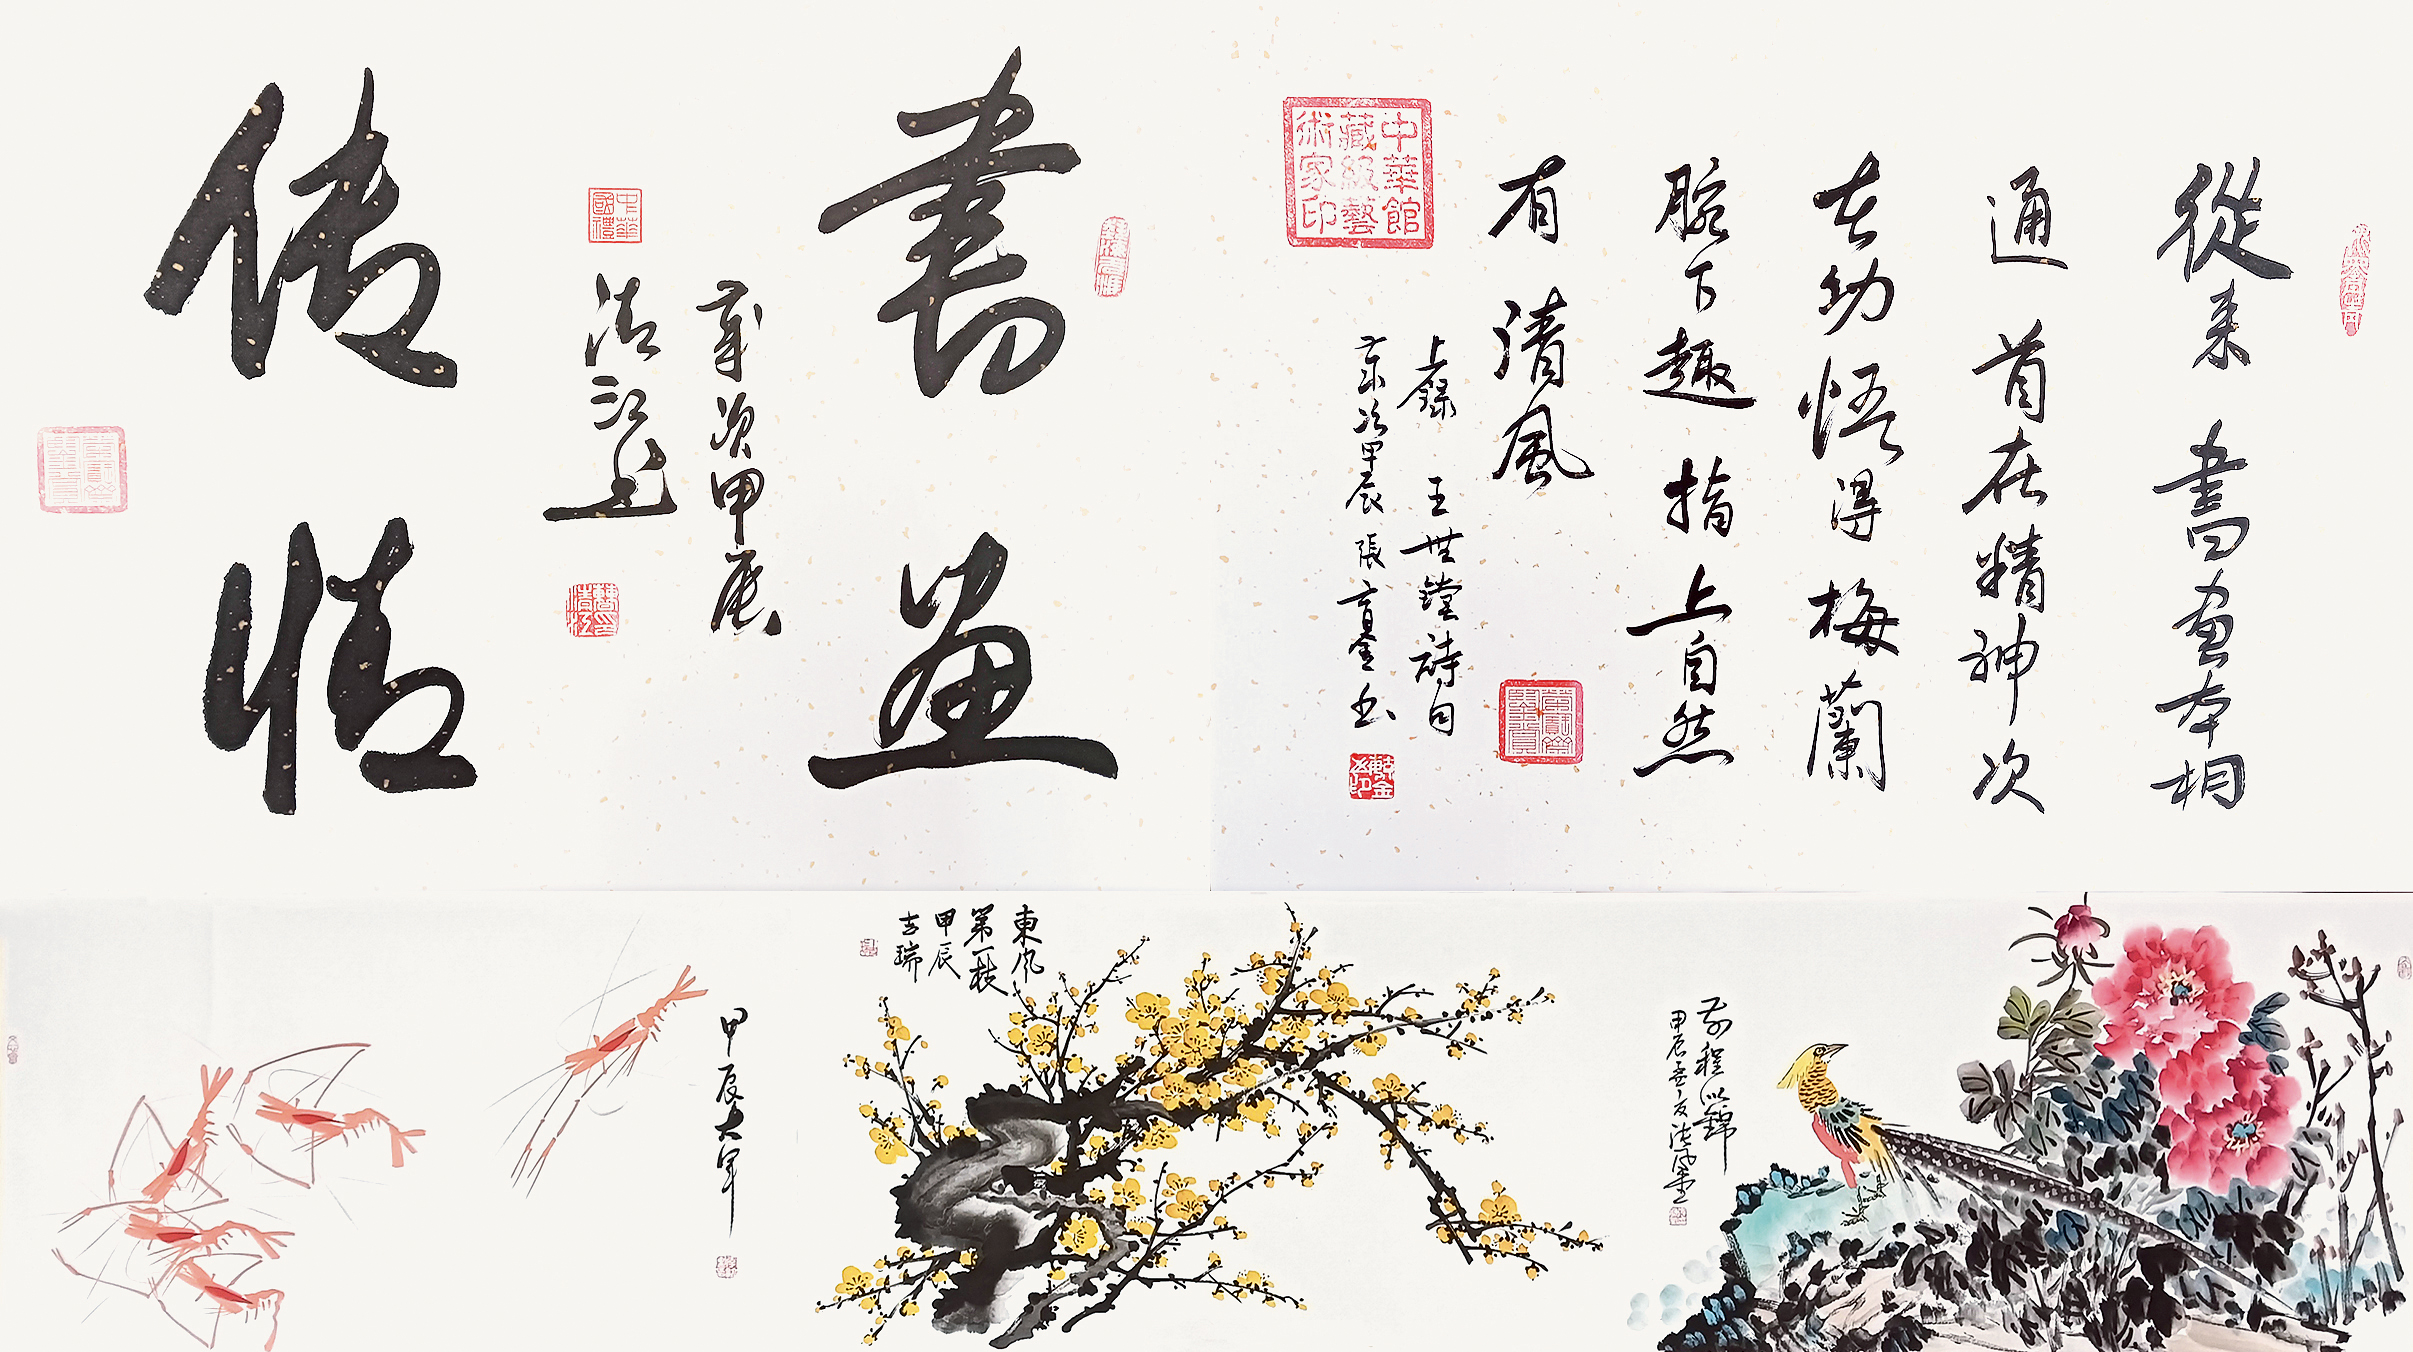 書画
傳情
歲次甲辰
清江書
中華
國禮
從来書画本相
通首在精神次
在功悟得梅蘭
腕下趣指上自然
有清風
上錄王世鏜詩句
歲次甲辰張育金書
中華館
藏級藝
術家印
前程似錦
東風
第一枝
甲辰
吉瑞
甲辰大軍